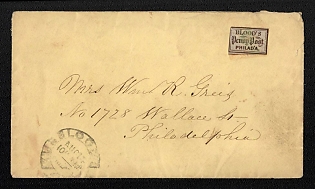 BLOOD'S
Penny Post
PHILAD'A.
Mrs Wm R. Greig
No 1728 Wallace St
Philadelphia
BLOOD'S